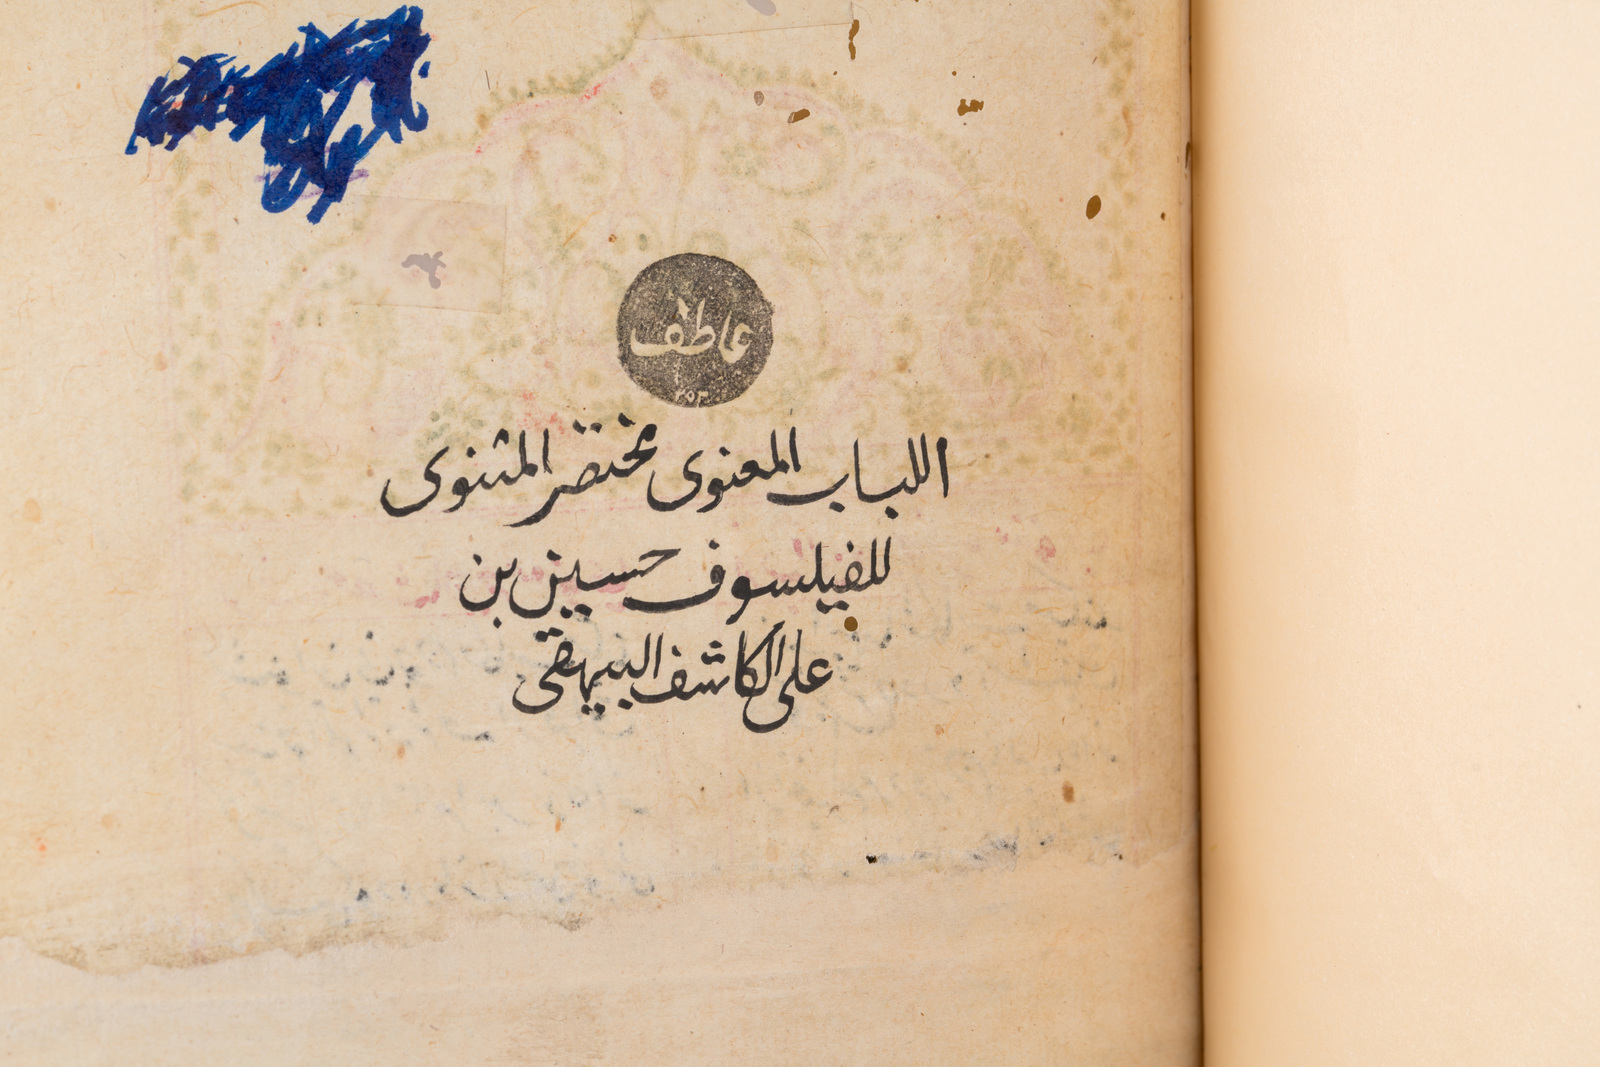 عاطف
اللباب المعنوى مختصر المثنوى
للفيلسوف حسين بن
على الكاشف البيهقى